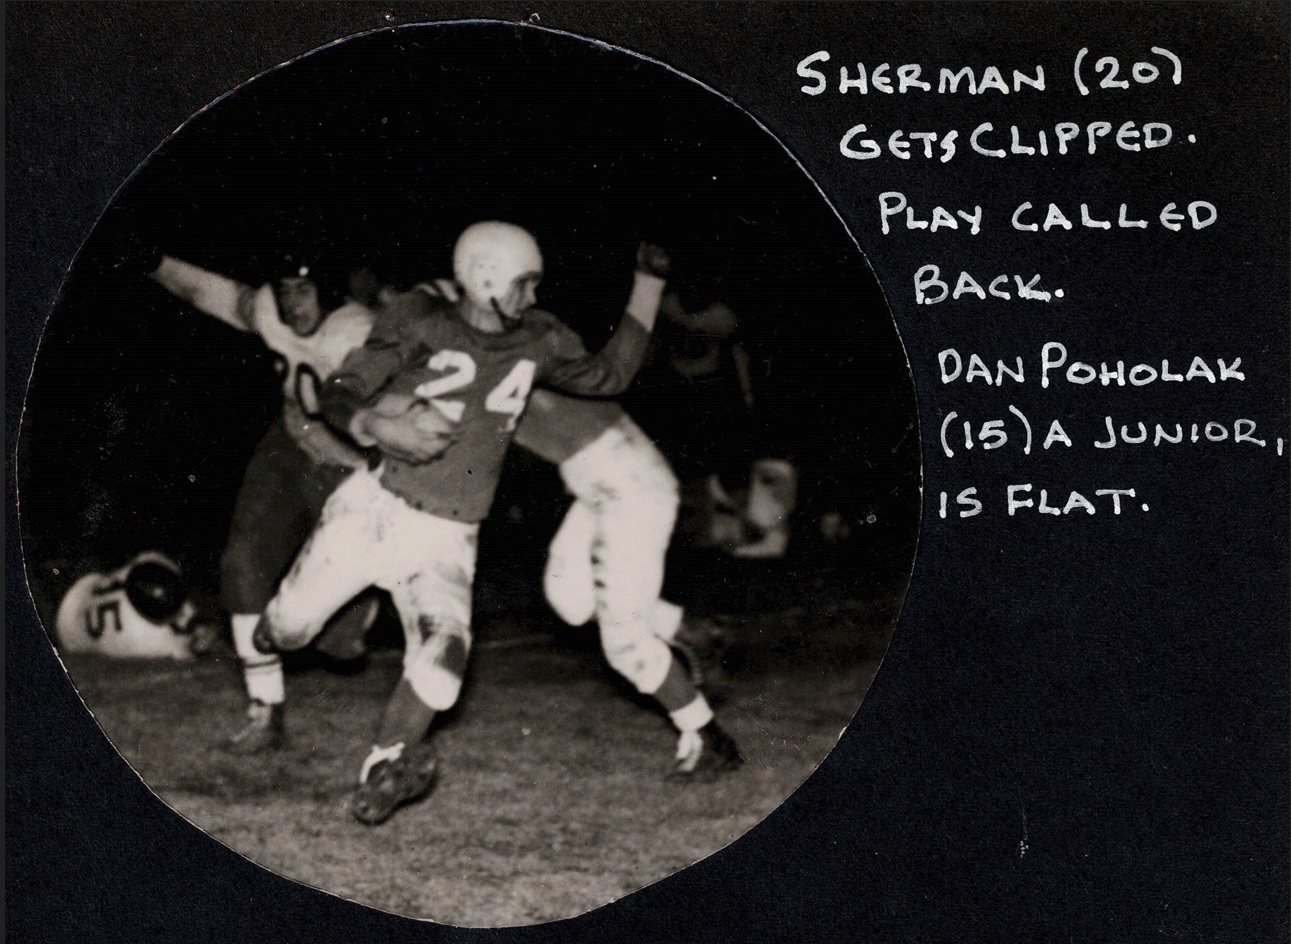 SHERMAN (20)
GETS CLIPPED.
PLAY CALLED
BACK.
DAN POHOLAK
(15) A JUNIOR,
IS FLAT.
24
15